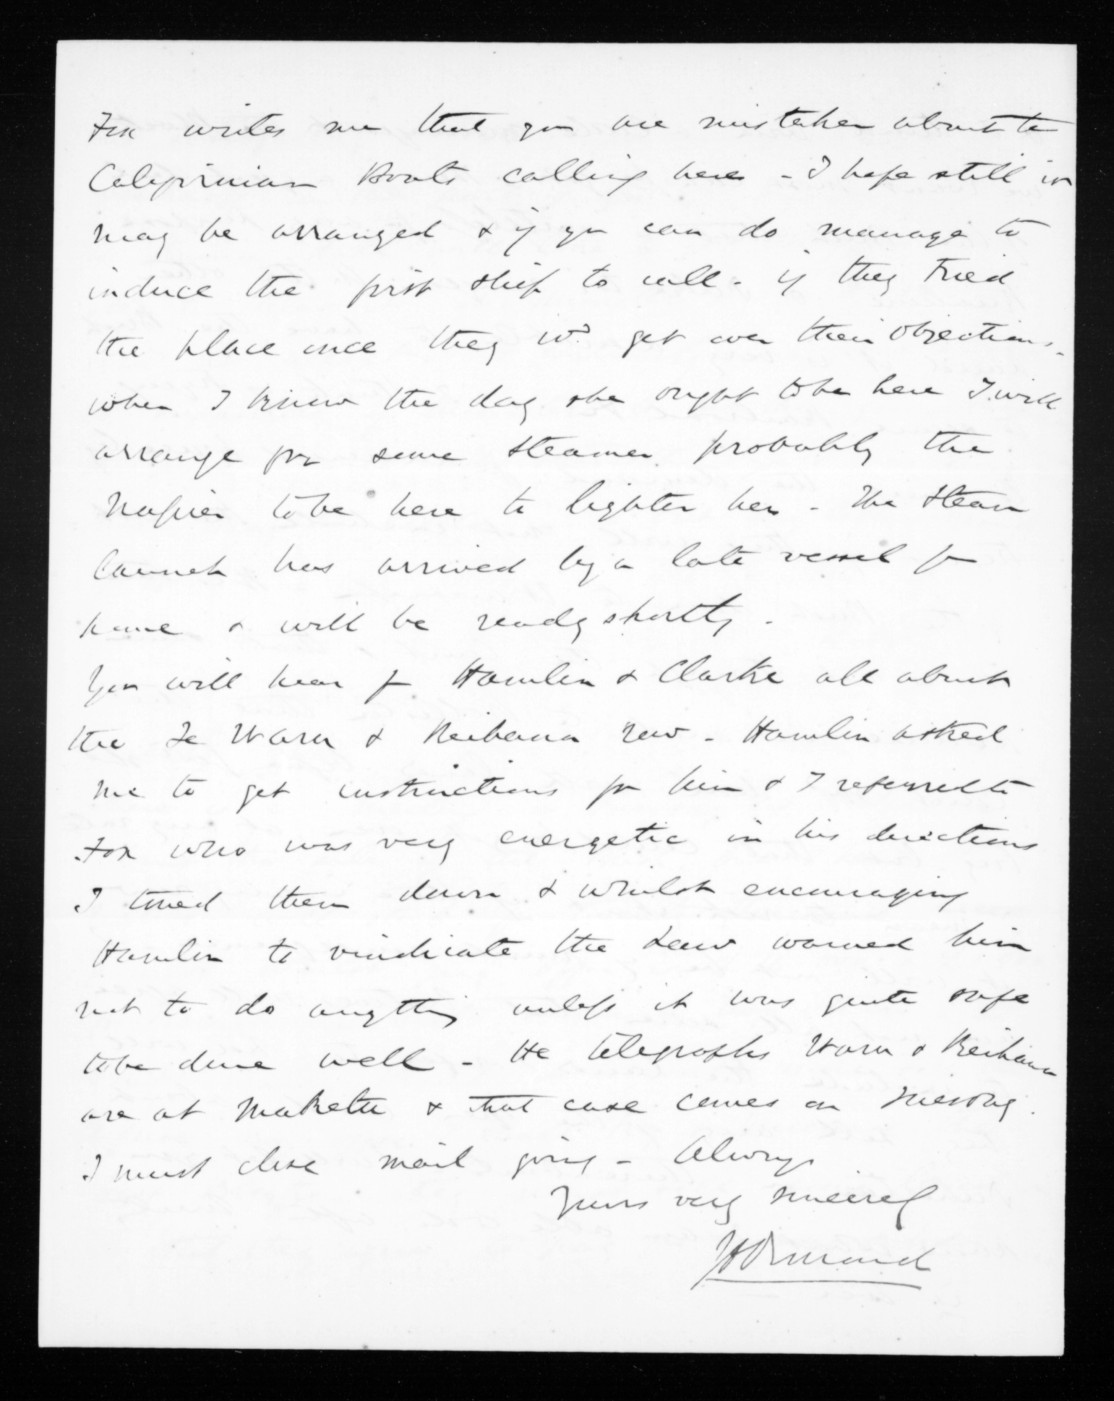 Fox writes me that you are mistaken about the
Californian Boats calling here - I hope still it
may be arranged & if you can do manage to
induce the first ship to call - if they tried
the place once they wd get over their objections -
when I know the day she ought to be here I will
arrange for some steamer probably the
Napier to be here to lighter her - The Steam
Launch has arrived by a late vessel fr
home & will be ready shortly -
You will hear fr Hamlin & Clarke all about
the Te Waru & Reihana row - Hamlin asked
me to get instructions for him & I referred to
Fox who was very energetic in his directions
I toned them down & whilst encouraging
Hamlin to vindicate the Law warned him
not to do anything unless it was quite safe
to be done well - He telegraphs Waru & Reihana
are at Maketu & that case comes on Tuesday.
I must close mail going - Always
Yours very sincerely
JDOrmond